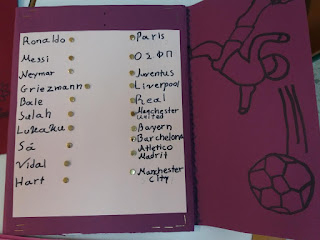 Ronaldo
Messi
Neymar
Griezmann
Bale
Salah
Lukaku
Sá
Vidal
Hart
Paris
ΟΣΦΠ
Juventus
Liverpool
Real
Manchester
United
Bayern
Barchelona
Atletico
Madrit
Manchester
City